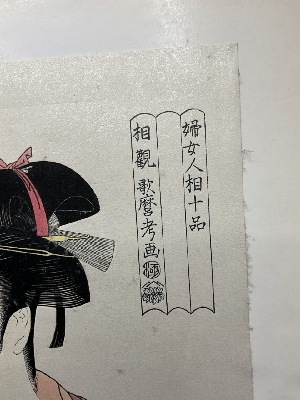 婦女人相十品
相觀
歌麿考画